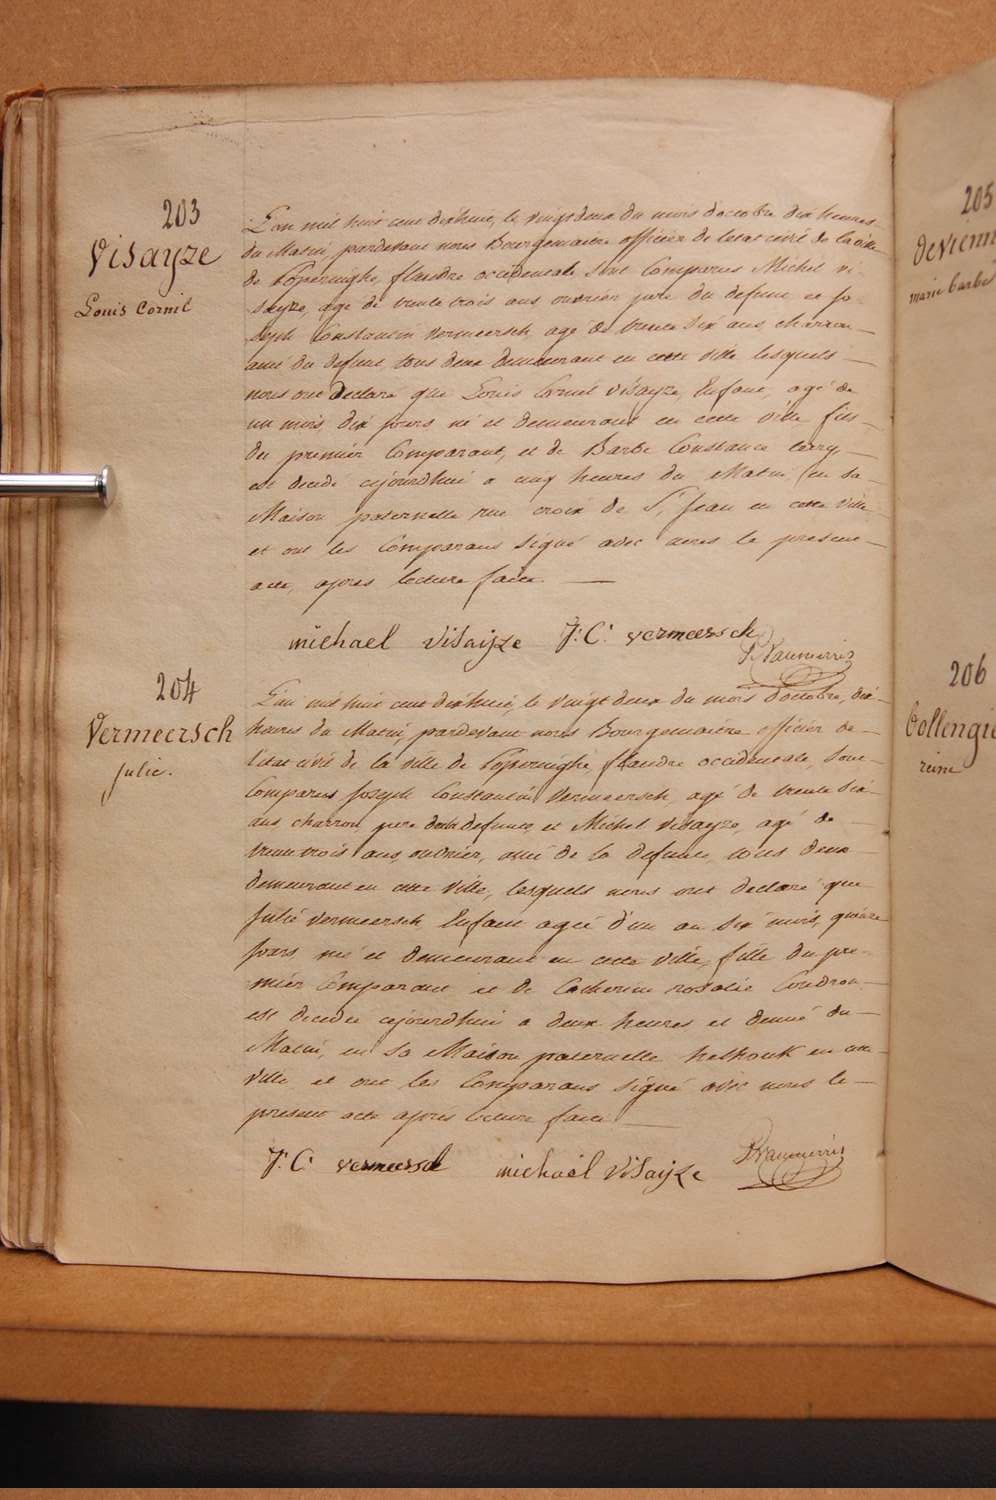 203
Visayze
Louis Cornil
L'an mil huit cent dixhuit, le vingtdeux du mois doctobre dix heures
du Matin pardevant nous Bourgemaitre officier de letat civil de la ville
de Poperinghe flandre occidentale sont Comparus Michel vi
sayze, agé de trente trois ans ouvrier pere du defunt et jo-
seph Constantin Vermeersch agé de trente six ans, charron
ami du defunt, tous deux demeurant en cette ville lesquels
nous ont Declaré que Louis Cornil Visayze, Enfant, agé de
un mois dix jours né et demeurant en cette ville fils
du premier Comparant, et de Barbe Constance
est decedé cejourdhui a cinq heures du Matin en sa
Maison paternelle rue croix de St. Jean en cette ville
et ont les Comparans signé avec nous le present
acte, apres lecture faite.
michael Visayze J: C: vermeersch
204
Vermeersch
julie.
L'an mil huit cent dixhuit, le vingt deux du mois doctobre, dix
heures du Matin, pardevant nous Bourgemaitre officier de
l'etat civil de la ville de Poperinghe flandre occidentale, sont
Comparus Joseph Constantin Vermeersch, agé de trente six
ans, charron pere de la defunte et Michel Visayze, agé de
trente trois ans, ouvrier, ami de la defunte, tous deux
demeurant en cette ville, lesquels nous ont declaré que
Julie vermeersch Enfant agée d'un an six mois, quinze
jours, née et demeurant en cette ville, fille du pre-
mier Comparant et de Catherine rosalie Coudron
est decedée cejourdhui a deux heures et demie du
Matin, en sa Maison paternelle helhouk en cette
ville et ont les Comparans signé avec nous le
present acte apres lecture faite
J: C: vermeersch michaël Visayze
205
devienn
marie barbe
206
Collengie
reine